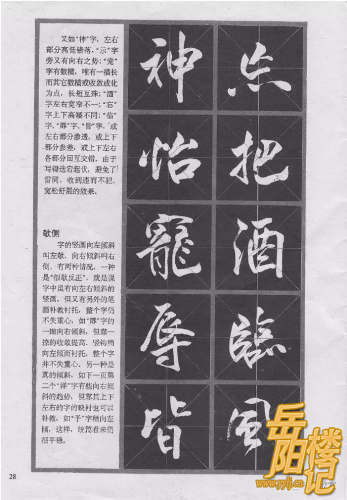 又如“神”字，左右
部分高低错落，“示”字
旁又有向右之势；“宠”
字有数横，唯有一横长
而其它数横或收敛或化
为点，长短互殊；“酒”
字左右宽窄不一；“忘”
字上下高矮不同；“临”
字，“辱”字，“皆”字，或
左右部分参透，或上下
部分参差，或上下左右
各部分回互交错，由于
写得迭宕起伏，避免了
雷同，收到违而不犯、
宽松舒展的效果。
欹侧
字的竖画向左倾斜
叫左欹，向右倾斜叫右
侧，有两种情况，一种
是“似欹反正”，就是说
字中虽有向左右倾斜的
竖画，但又有另外的笔
画补救衬托，整个字仍
不失重心，如“辱”字的
一撇向右倾斜，但靠一
捺的收敛提高，竖钩稍
向左倾而衬托，整个字
并不失重心。另一种是
真的倾斜，如下一页第
二个“禅”字有些向右倾
斜的趋势，但靠其上下
左右的字的映衬也可以
补救，如“予”字稍向左
倾，这样，统篇看来仍
很平稳。
忘 神
把 怡
酒 宠
临 辱
风 皆
28
岳阳楼记